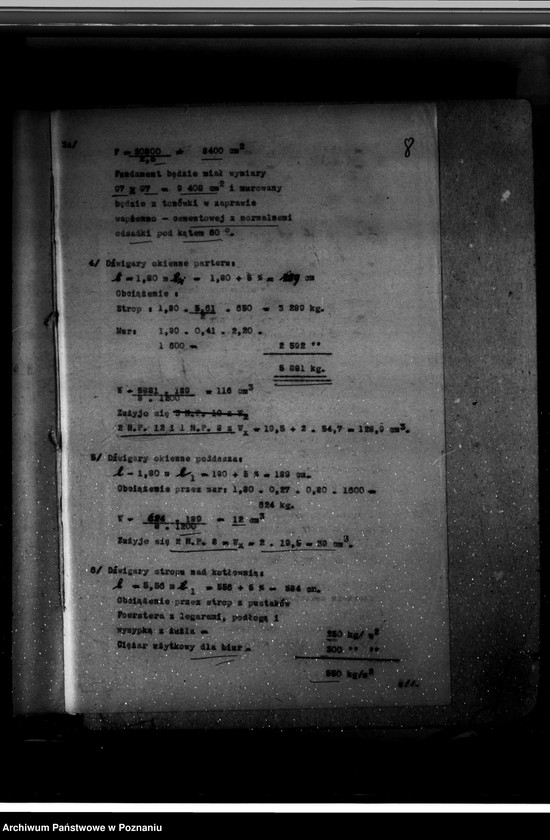 8
F = 20800 = 8400 cm2
2,5
Fundament będzie miał wymiary
97 x 97 = 9 409 cm2 i murowany
będzie z tonówki w zaprawie
wapienno - cementowej z normalnemi
odsadki pod kątem 60 °.
4/ Dźwigary okienne parteru:
l = 1,80 m l1 = 1,80 + 5 % = 189 cm
Obciążenie :
Strop : 1,90 . 5,61 . 650 = 3 289 kg.
2
Mur: 1,90 . 0,41 . 2,20 .
1 600 = 2 592 "
5 881 kg.
W = 5881 . 189 = 116 cm3
8 . 1200
Zużyje się
2 N.P. 12 i 1 N.P. 8 z Wx = 19,5 + 2 . 54,7 = 128,9 cm3.
5/ Dźwigary okienne poddasza:
l = 1,80 m l1 = 180 + 5 % = 189 cm.
Obciążenie przez mur: 1,80 . 0,27 . 0,80 . 1600 =
624 kg.
W = 624 . 189 = 12 cm3
8 . 1200
Zużyje się 2 N.P. 8 z Wx = 2 . 19,5 = 39 cm3.
6/ Dźwigary stropu nad kotłownią:
l = 5,56 m l1 = 556 + 5 % = 584 cm.
Obciążenie przez strop z pustaków
Foerstera z legarami, podłogą i
wysypką z żużla = 350 kg/m2
Ciężar użytkowy dla biur = 300 " "
650 kg/m2
Archiwum Państwowe w Poznaniu